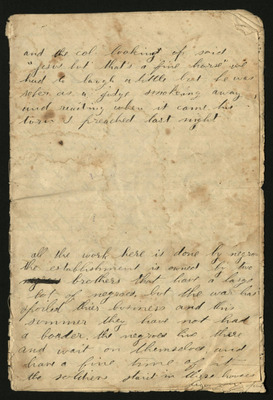 and the col looking of said
"Jesus but that's a fine horse" we
had to laugh a little but he was
sober as a judge smoking away
and waiting when it came his
turn I preached last night

all the work here is done by negroes
the establishment is owned by two
brothers that have a large
lot of negroes, but the war has
spoiled their business and this
summer they have not had
a boarder, the negroes live there
and wait on themselves and
have a fine time of it
the soldiers staid in these houses